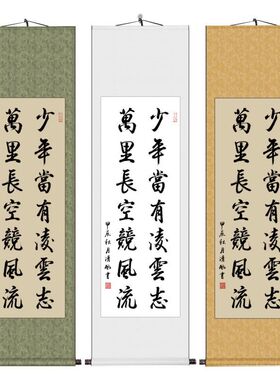 少年當有凌雲志
萬里長空競風流
少年當有凌雲志
萬里長空競風流
甲辰秋月清書
少年當有凌雲志
萬里長空競風流